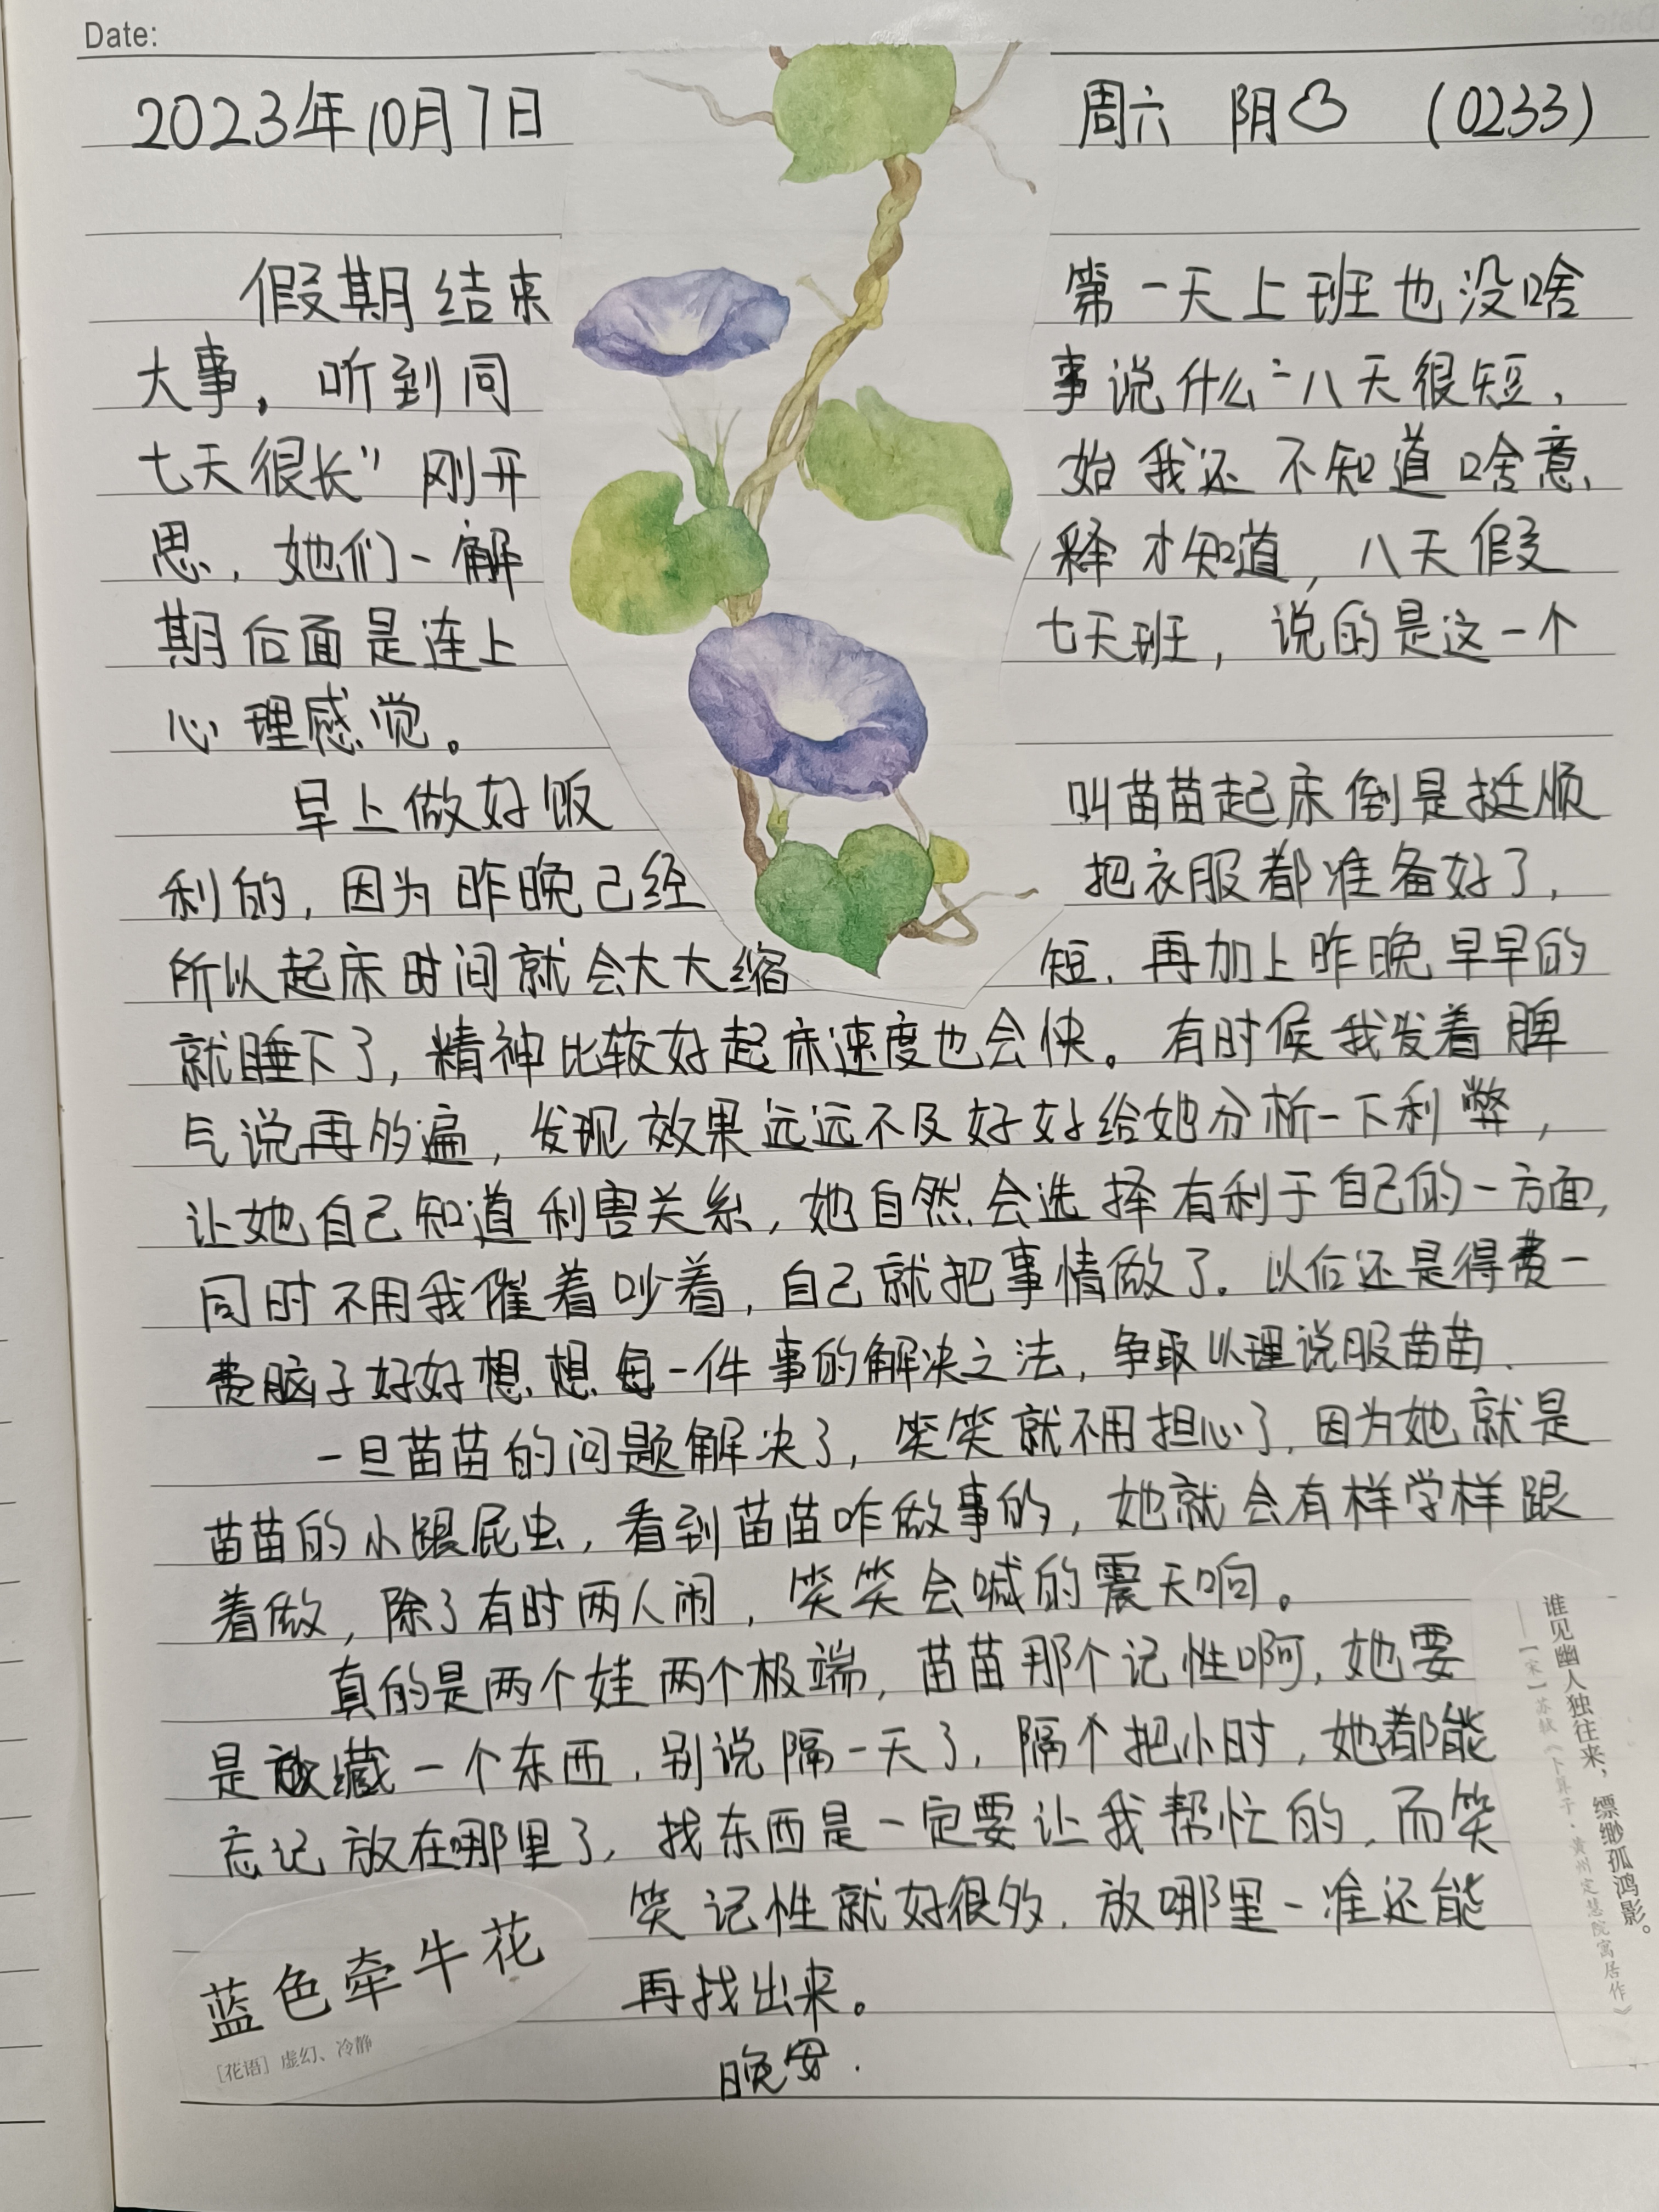 Date:
2023年10月7日 周六 阴 (0233)
假期结束 第一天上班也没啥
大事，听到同 事说什么“八天很短，
七天很长”刚开 始我还不知道啥意
思，她们一解 释才知道，八天假
期后面是连上 七天班，说的是这一个
心理感觉。
早上做好饭 叫苗苗起床倒是挺顺
利的，因为昨晚已经 把衣服都准备好了，
所以起床时间就会大大缩 短，再加上昨晚早早的
就睡下了，精神比较好起床速度也会快。有时候我发着脾
气说再多遍，发现效果远远不及好好给她分析一下利弊，
让她自己知道利害关系，她自然会选择有利于自己的一方面，
同时不用我催着吵着，自己就把事情做了。以后还是得费一
费脑子好好想想每一件事的解决之法，争取以理说服苗苗.
一旦苗苗的问题解决了，笑笑就不用担心了，因为她就是
苗苗的小跟屁虫，看到苗苗咋做事的，她就会有样学样跟
着做，除了有时两人闹，笑笑会喊的震天响。
真的是两个娃两个极端，苗苗那个记性啊，她要
是藏一个东西，别说隔一天了，隔个把小时，她都能
忘记放在哪里了，找东西是一定要让我帮忙的，而笑
笑记性就好很多，放哪里一准还能
再找出来。
晚安.
蓝色牵牛花
[花语] 虚幻、冷静
谁见幽人独往来，缥缈孤鸿影。
——[宋] 苏轼《卜算子·黄州定慧院寓居作》